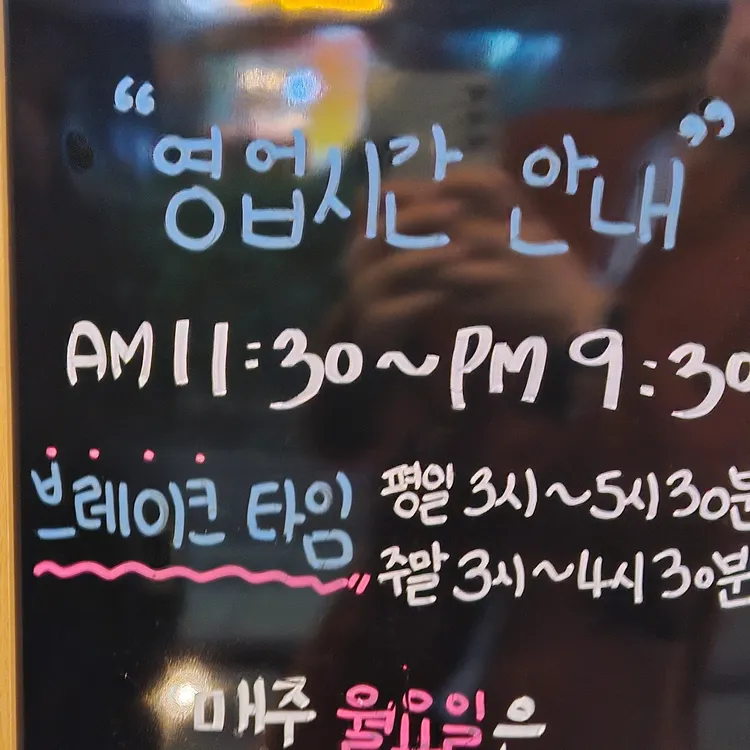 “영업시간 안내”
AM 11:30~PM 9:30
브레이크 타임 평일 3시~5시30분
주말 3시~4시30분
매주 월요일은